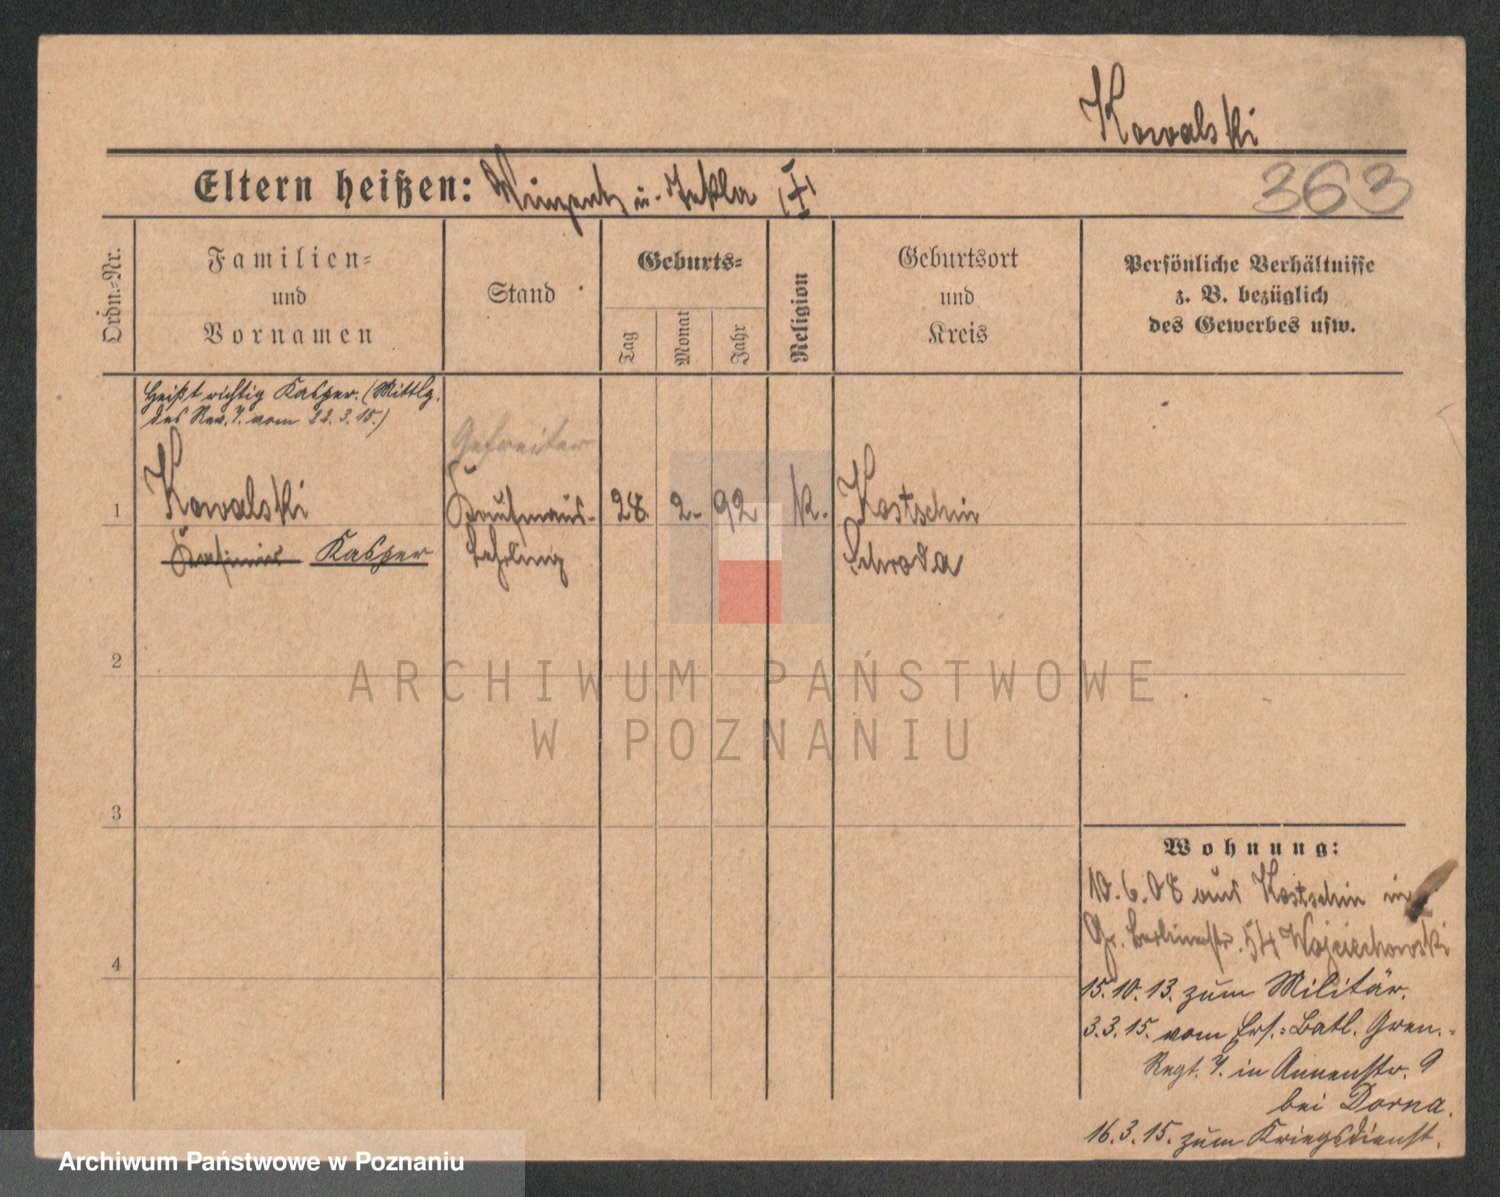 Kowalski
363
Eltern heißen: Vinzent u. Tekla
Ordn.-Nr.
Familien-
und
Vornamen
Stand
Geburts-
Tag
Monat
Jahr
Religion
Geburtsort
und
Kreis
Persönliche Verhältnisse
z. B. bezüglich
des Gewerbes usw.
Heißt richtig Kasper. (Mittlg.
des Rev. 7. vom 22. 3. 15.)
Gefreiter
1 Kowalski Kaufmanns- 28. 2. 92 k. Kostschin
Kasimir Kasper Lehrling Schroda
2
3
4
Wohnung:
10. 6. 08 aus Kostschin in
Gr. Berlinerstr. 54 Wojciechowski
15. 10. 13. zum Militär.
3. 3. 15. vom Ers.- Batl. Gren.-
Regt. 7. in Annenstr. 9
bei Dorna.
16. 3. 15. zum Kriegsdienst.
ARCHIWUM PAŃSTWOWE
W POZNANIU
Archiwum Państwowe w Poznaniu